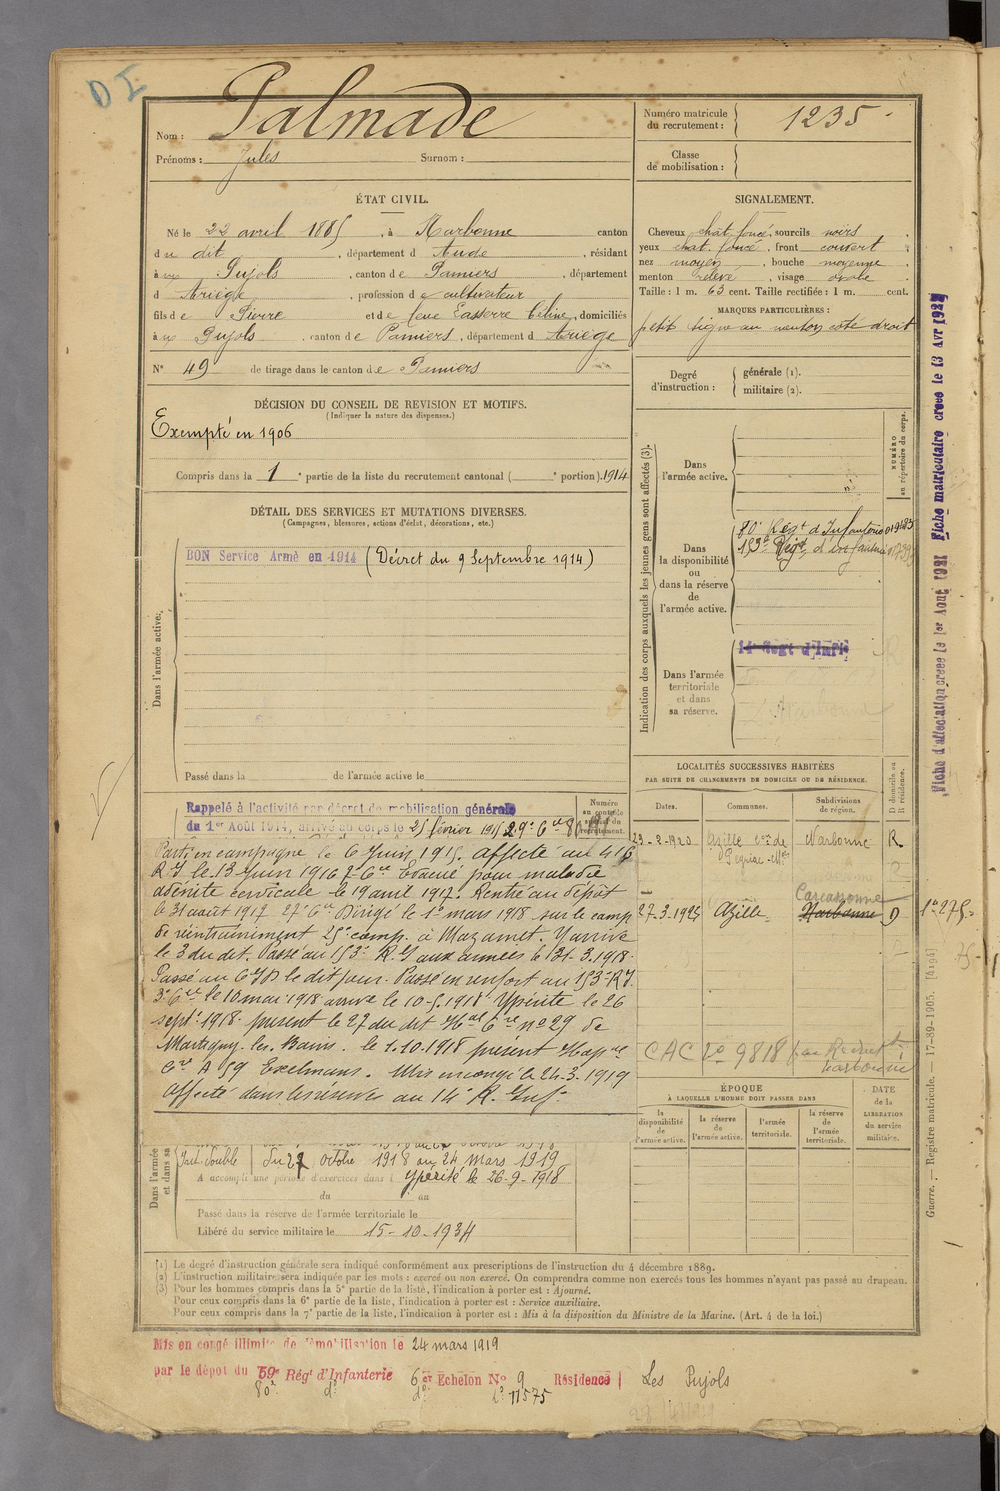 D I
Nom : Palmade
Prénoms : Jules Surnom :
Numéro matricule du recrutement : 1235
Classe de mobilisation :
ÉTAT CIVIL.
Né le 22 avril 1885, à Narbonne canton
du dit, département d Aude, résidant
à Pujols, canton de Pamiers, département
d Ariège, profession de cultivateur
fils de Pierre et de feue Lasserre Céline, domiciliés
à Pujols, canton de Pamiers, département d Ariège
N° 49 de tirage dans le canton de Pamiers
SIGNALEMENT.
Cheveux chat. foncé, sourcils noirs,
yeux chat. foncé, front couvert,
nez moyen, bouche moyenne,
menton relevé, visage ovale.
Taille : 1 m. 63 cent. Taille rectifiée : 1 m. cent.
MARQUES PARTICULIÈRES :
petit signe au menton coté droit
Degré d'instruction : générale (1).
militaire (2).
DÉCISION DU CONSEIL DE REVISION ET MOTIFS.
(Indiquer la nature des dispenses.)
Exempté en 1906
Compris dans la 1e partie de la liste du recrutement cantonal ( e portion). 1914
DÉTAIL DES SERVICES ET MUTATIONS DIVERSES.
(Campagnes, blessures, actions d'éclat, décorations, etc.)
Dans l'armée active.
BON Service Armé en 1914 (Décret du 9 Septembre 1914)
Passé dans la de l'armée active le
Indication des corps auxquels les jeunes gens sont affectés (3).
NUMÉRO au répertoire du corps.
Dans l'armée active.
Dans la disponibilité ou dans la réserve de l'armée active.
80e Régt d'Infanterie
153e Régt d'Infanterie
Dans l'armée territoriale et dans sa réserve.
14e Regt d'Infie
LOCALITÉS SUCCESSIVES HABITÉES
PAR SUITE DE CHANGEMENTS DE DOMICILE OU DE RÉSIDENCE.
D domicile ou R résidence.
Dates. Communes. Subdivisions de région.
23-2-1920 Azille Narbonne R
Carcassonne
27-3-1925 Azille Narbonne D
CAC No 9818
Narbonne
Rappelé à l'activité par décret de mobilisation générale
du 1er Août 1914, arrivé au corps le 25 février 1915 29e Cie
Parti en campagne le 6 Juin 1915. Affecté au 416
R.I. le 13 Juin 1916 7e Cie Evacué pour maladie
adénite cervicale le 19 avril 1917. Rentré au dépôt
le 31 août 1917 27e Cie Dirigé le 1er mars 1918 sur le camp
de réentrainement 25e comp. à Mazamet. Y arrive
le 3 du dit. Passé au 153e R.I. aux armées le 31-3-1918.
Passé au C I D le dit jour. Passé en renfort au 153e R.I.
3e Cie le 10 mai 1918 arrivé le 10-5-1918. Ypérité le 26
septe 1918. présent le 27 du dit Hal Cre no 29 de
Martigny-les-Bains. le 1-10-1918 présent
A 59 Exelmans. Mis en congé le 24-3-1919
Affecté dans les réserves au 14e R. Inf.
Dans l'armée et dans sa
du 27 octobre 1918 au 24 mars 1919
A accompli une période d'exercices dans l Ypérité le 26-9-1918
du au
Passé dans la réserve de l'armée territoriale le
Libéré du service militaire le 15-10-1934
ÉPOQUE
À LAQUELLE L'HOMME DOIT PASSER DANS
la disponibilité de l'armée active.
la réserve de l'armée active.
l'armée territoriale.
la réserve de l'armée territoriale.
DATE de la LIBÉRATION du service militaire.
(1) Le degré d'instruction générale sera indiqué conformément aux prescriptions de l'instruction du 4 décembre 1889.
(2) L'instruction militaire sera indiquée par les mots : exercé ou non exercé. On comprendra comme non exercés tous les hommes n'ayant pas passé au drapeau.
(3) Pour les hommes compris dans la 5e partie de la liste, l'indication à porter est : Ajourné.
Pour ceux compris dans la 6e partie de la liste, l'indication à porter est : Service auxiliaire.
Pour ceux compris dans la 7e partie de la liste, l'indication à porter est : Mis à la disposition du Ministre de la Marine. (Art. 4 de la loi.)
Mis en congé illimité de démobilisation le 24 mars 1919
par le dépot du 59e Régt d'Infanterie 6er Echelon No 9 Résidence Les Pujols
80e do do 11575
Guerre. — Registre matricule. — 17-89-1905. [4194]
Fiche d'affectation créée le 1er Août 1921
Fiche matriculaire créée le 13 Avr 1922